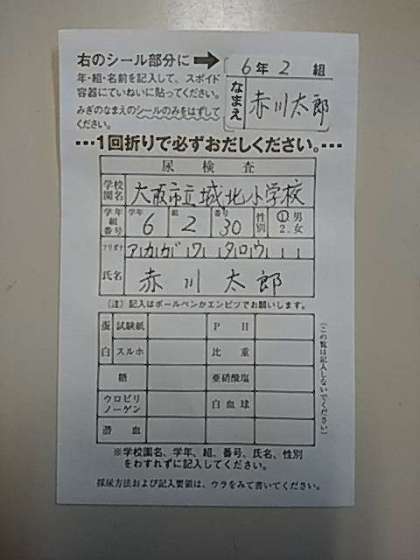 右のシール部分に
年・組・名前を記入して、スポイド
容器にていねいに貼ってください。
みぎのなまえのシールのみをはずして
ください。
6年 2 組
なまえ 赤川太郎
…1回折りで必ずおだしください。…
尿検査
学校園名 大阪市立城北小学校
学年組番号 学年 6 組 2 番号 30 性別 1.男 2.女
フリガナ アカガワ タロウ
氏名 赤川太郎
(注)記入はボールペンかエンピツでお願いします。
蛋白 試験紙 PH
スルホ 比重
糖 亜硝酸塩
ウロビリノーゲン 白血球
潜血
(この覧は記入しないでください)
※学校園名、学年、組、番号、氏名、性別
をわすれずに記入してください。
採尿方法および記入要領は、ウラをみて書いてください。